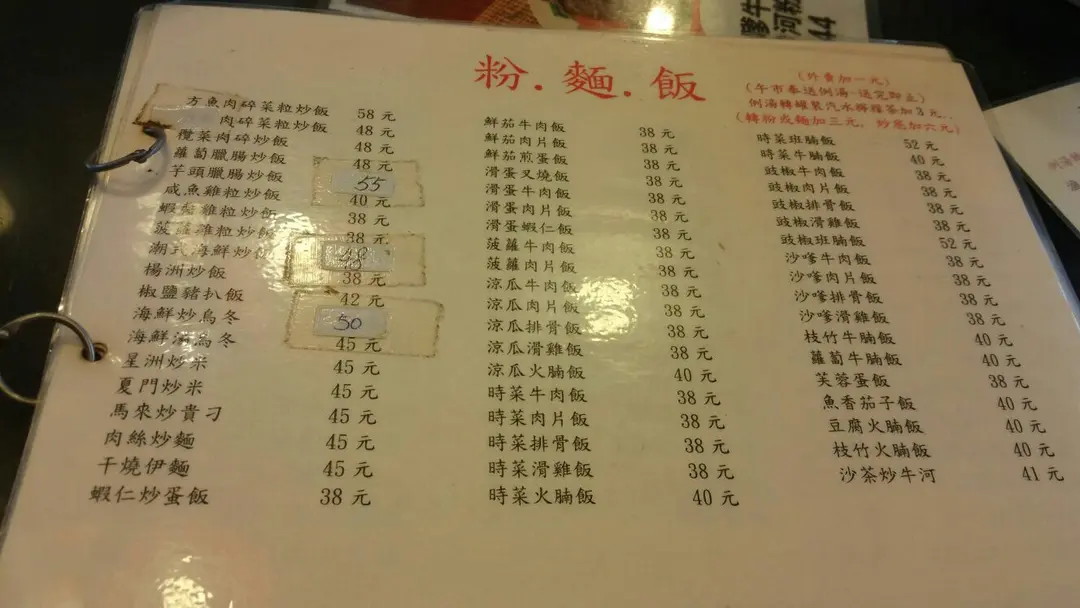 爹牛
河粉
44
粉.麵.飯
(外賣加一元)
(午市奉送例湯-送完即止)
例湯轉罐裝汽水檸檬茶加3元..
(轉粉或麵加三元，炒底加六元)
方魚肉碎菜粒炒飯 58 元
肉碎菜粒炒飯 48 元
欖菜肉碎炒飯 48 元
蘿蔔臘腸炒飯 48 元
芋頭臘腸炒飯 55
咸魚雞粒炒飯 40 元
雞粒炒飯 38 元
菠蘿雞粒炒飯 38 元
潮式海鮮炒飯 48
楊洲炒飯 38 元
椒鹽豬扒飯 42 元
海鮮炒烏冬 50
海鮮湯烏冬 45 元
星洲炒米 45 元
夏門炒米 45 元
馬來炒貴刁 45 元
肉絲炒麵 45 元
干燒伊麵 45 元
蝦仁炒蛋飯 38 元
鮮茄牛肉飯 38 元
鮮茄肉片飯 38 元
鮮茄煎蛋飯 38 元
滑蛋叉燒飯 38 元
滑蛋牛肉飯 38 元
滑蛋肉片飯 38 元
滑蛋蝦仁飯 38 元
菠蘿牛肉飯 38 元
菠蘿肉片飯 38 元
涼瓜牛肉飯 38 元
涼瓜肉片飯 38 元
涼瓜排骨飯 38 元
涼瓜滑雞飯 38 元
涼瓜火腩飯 40 元
時菜牛肉飯 38 元
時菜肉片飯 38 元
時菜排骨飯 38 元
時菜滑雞飯 38 元
時菜火腩飯 40 元
時菜班腩飯 52 元
時菜牛腩飯 40 元
豉椒牛肉飯 38 元
豉椒肉片飯 38 元
豉椒排骨飯 38 元
豉椒滑雞飯 38 元
豉椒班腩飯 52 元
沙嗲牛肉飯 38 元
沙嗲肉片飯 38 元
沙嗲排骨飯 38 元
沙嗲滑雞飯 38 元
枝竹牛腩飯 40 元
蘿蔔牛腩飯 40 元
芙蓉蛋飯 38 元
魚香茄子飯 40 元
豆腐火腩飯 40 元
枝竹火腩飯 40 元
沙茶炒牛河 41 元